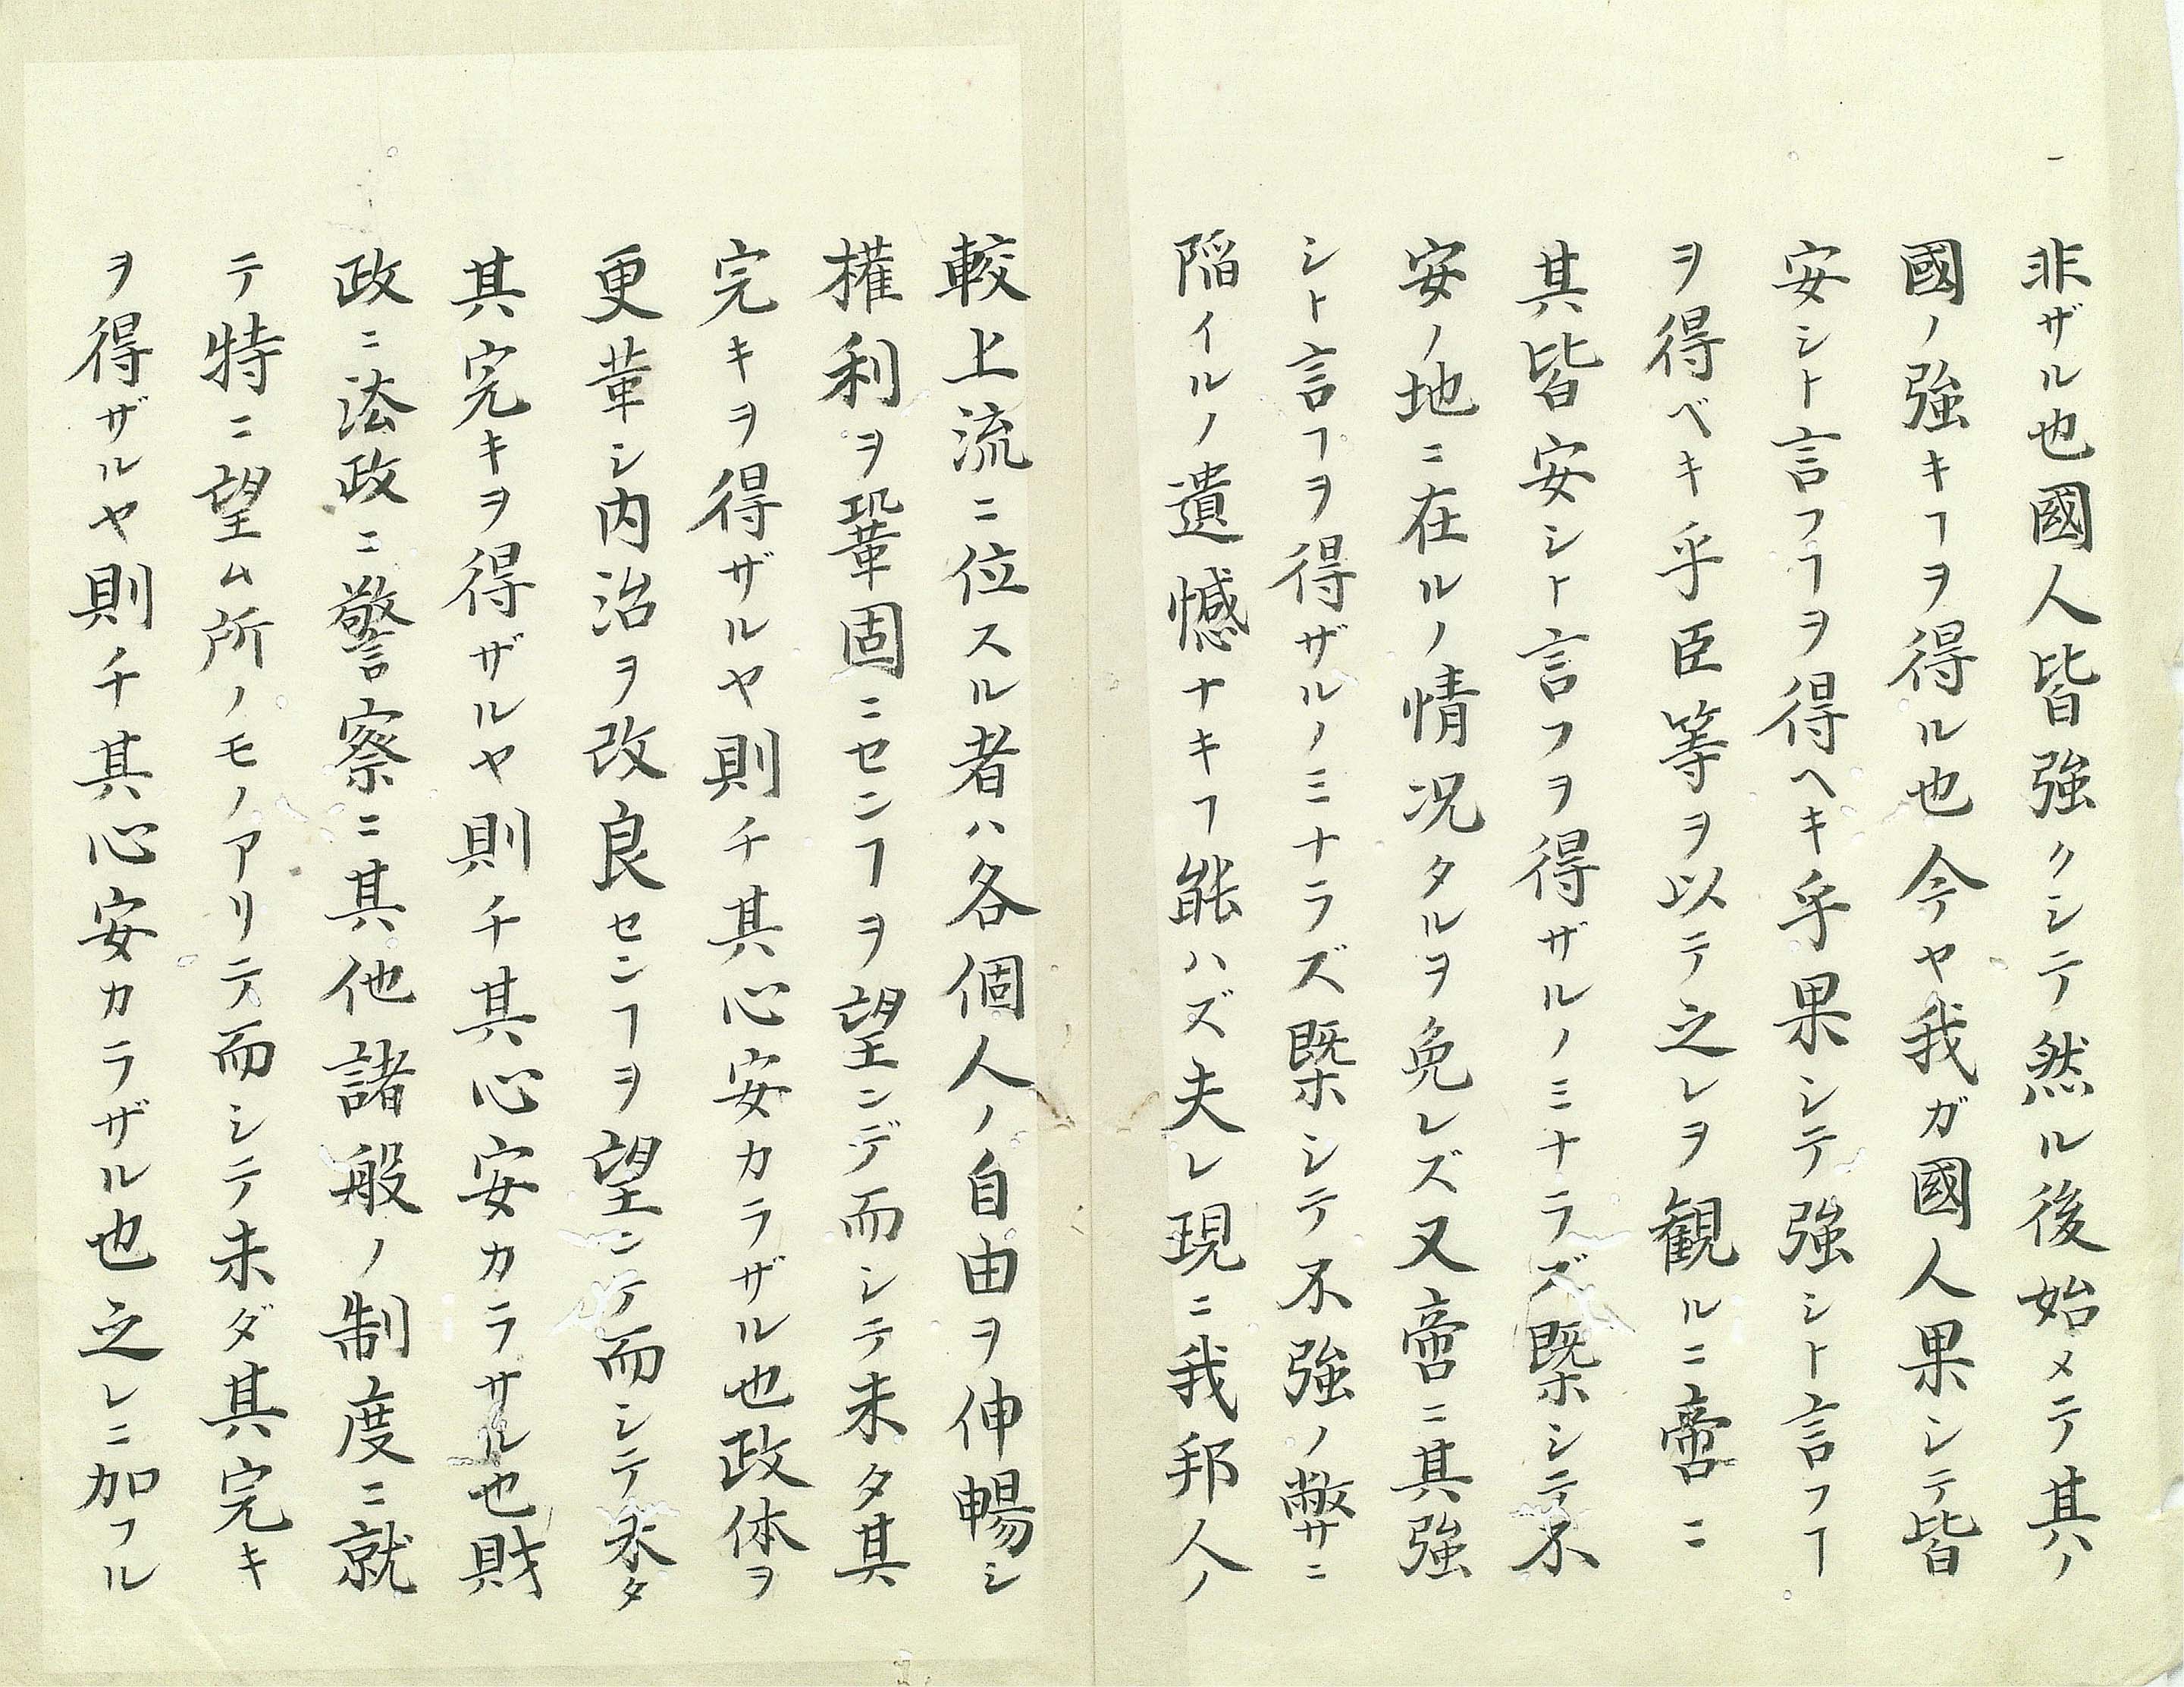 非ザル也國人皆強クシテ然ル後始メテ其ノ
國ノ強キヿヲ得ル也今ヤ我ガ國人果シテ皆
安シト言フヿヲ得ヘキ乎果シテ強シト言フヿ
ヲ得ベキ乎臣等ヲ以テ之レヲ観ルニ啻ニ
其皆安シト言フヲ得ザルノミナラズ既ニシテ不
安ノ地ニ在ルノ情況タルヲ免レズ又啻ニ其強
シト言フヲ得ザルノミナラズ槩シテ不強ノ弊サニ
陥イルノ遺憾ナキヿ能ハズ夫レ現ニ我邦人ノ
較上流ニ位スル者ハ各個人ノ自由ヲ伸暢シ
権利ヲ鞏固ニセンヿヲ望ンデ而シテ未タ其
完キヲ得ザルヤ則チ其心安カラザル也政体ヲ
更革シ内治ヲ改良センヿヲ望ンデ而シテ未タ
其完キヲ得ザルヤ則チ其心安カラサル也財
政ニ法政ニ警察ニ其他諸般ノ制度ニ就
テ特ニ望ム所ノモノアリテ而シテ未ダ其完キ
ヲ得ザルヤ則チ其心安カラザル也之レニ加フル